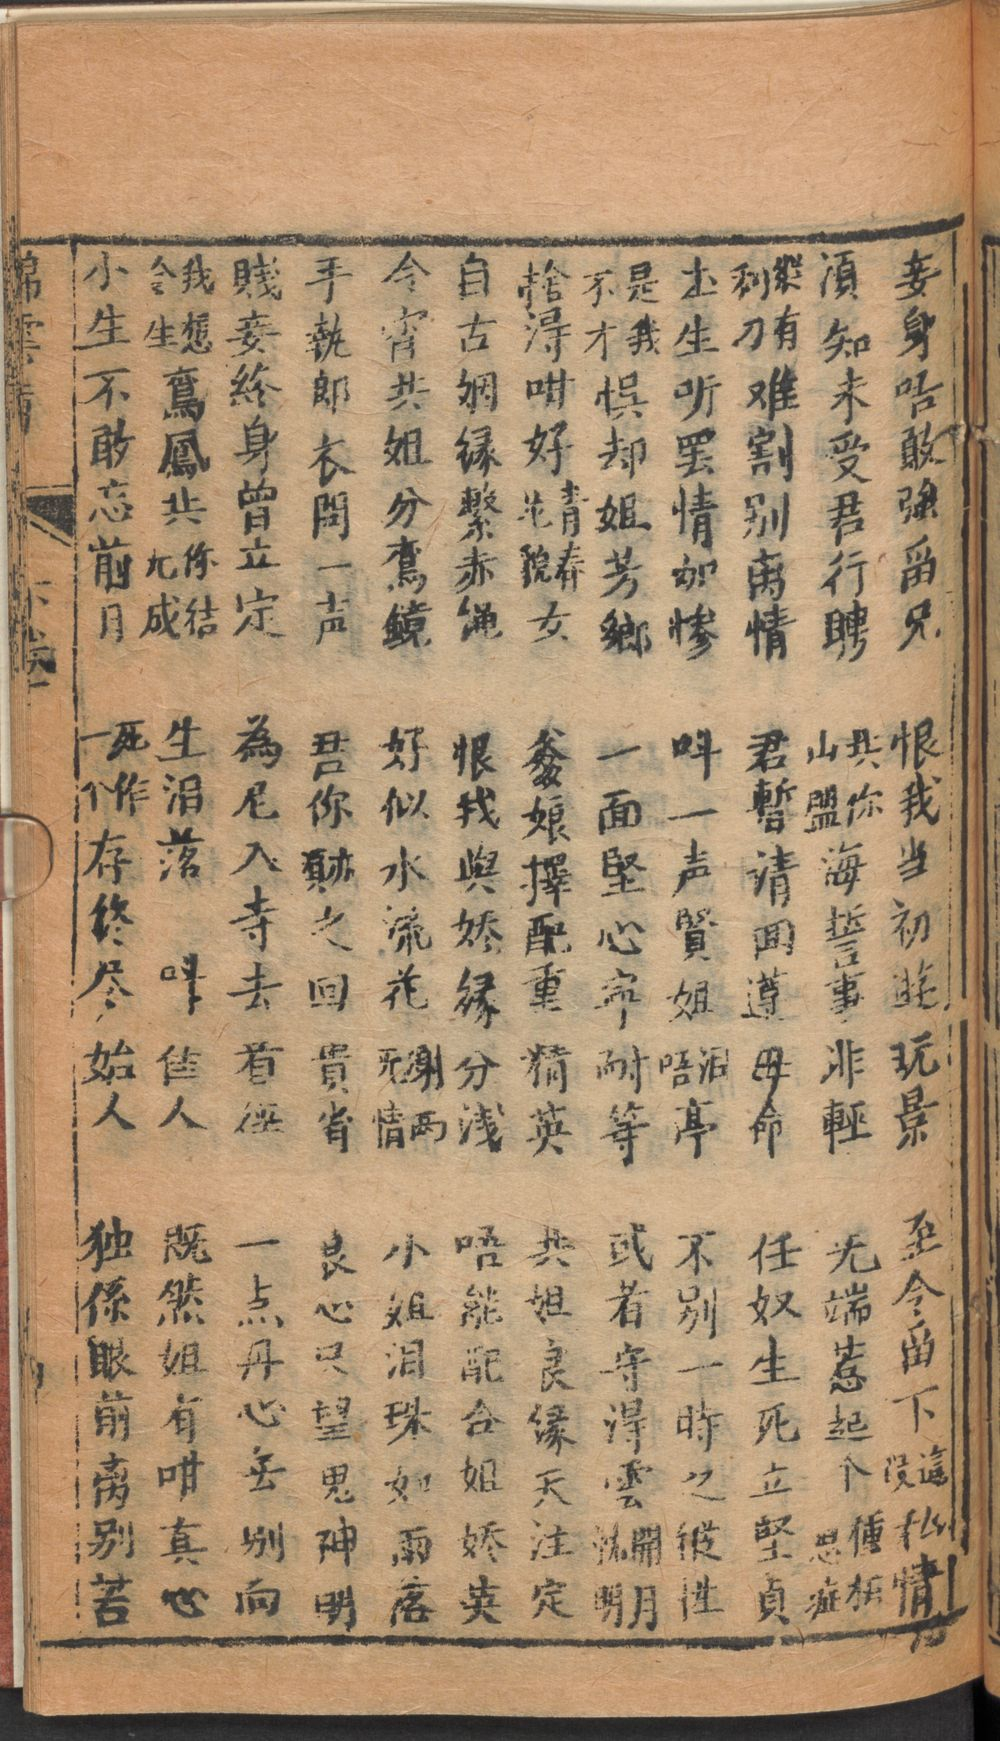 妾身咭敢強畄兄　恨我当初遊玩景　至令畄下這段私情
湏知未受君行聘　共你山盟海誓事非輕　无端惹起个種相思症
縱有利刀难割别离情　君暫请囬遵母命　任奴生死立堅貞
士生听罢情如惨　呌一声賢姐泪唔亭　不别一時之彼性
是我不才悮却姐芳鄉　一面堅心寧耐等　或者守淂雲開月朗明
捨淂咁好青春皃女　爹娘擇配重精英　共姐良缘天注定
自古姻緣繫赤绳　恨我與娇縁分浅　唔能配合姐娇英
今宵共姐分鸞鏡　好似水流花謝两无情　小姐泪珠如雨落
手執郎衣問一声　君你蹟之回貴省　良心只望鬼神明
賤妾終身曾立定　為尼入寺去看経　一点丹心无别向
我想今生鳶鳳共你结九成　生泪落　呌佳人　既然姐有咁真心
小生不敢忘前月　死作一个存终尽始人　独係眼前离别苦
錦雲 下卷